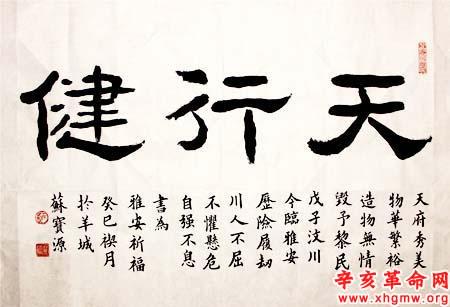 天行健
天府秀美
物華繁裕
造物無情
毀予黎民
戊子汶川
今臨雅安
歷險履劫
川人不屈
不懼懸危
自强不息
書為
雅安祈福
癸巳禊月
於羊城
蘇寶源
辛亥革命网
www.xhgmw.org